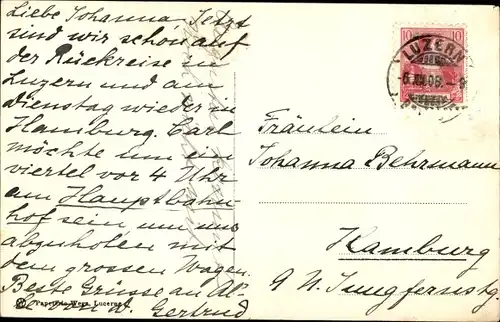 Liebe Johanna, Jetzt
sind wir schon auf
der Rückreise in
Luzern und am
Dienstag wieder in
Hamburg. Carl
möchte um ein
viertel vor 4 Uhr
am Hauptbahn-
hof sein, um uns
abzuholen mit
dem grossen Wagen.
Beste Grüsse an Al-
le von d. Gertrud
Papeterie Wega, Lucerne
10 10
LUZERN
Fräulein
Johanna Behrmann
Hamburg
9 N. Jungfernstg